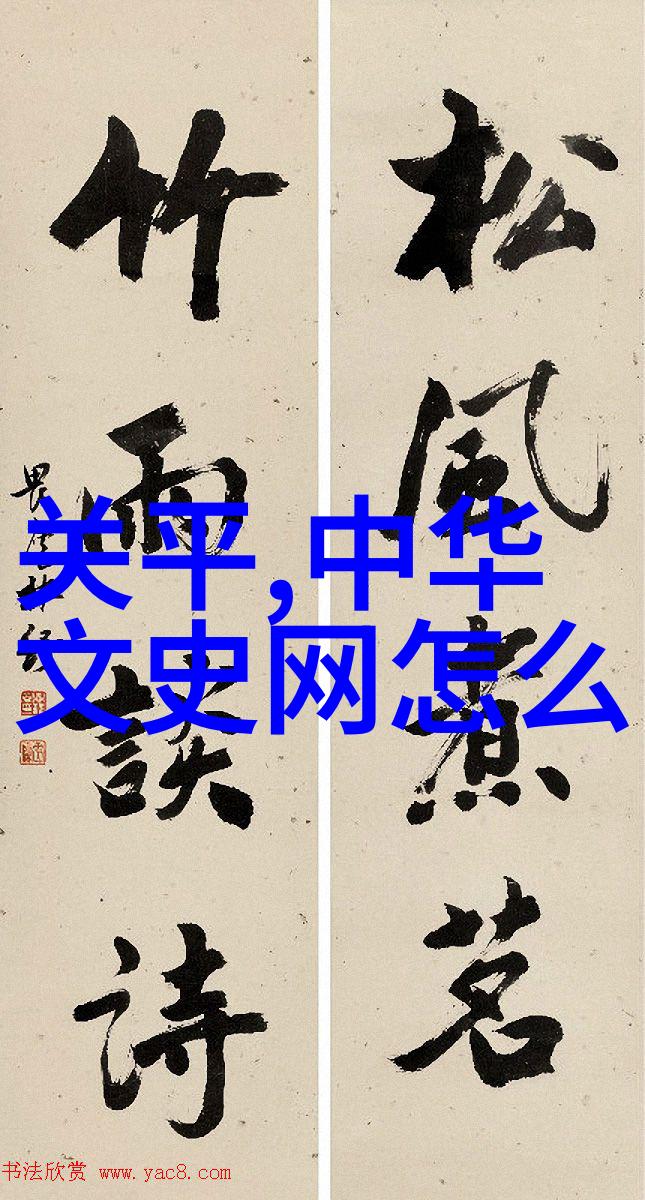 松風煮茗
竹雨談詩
林經
关平,中华
文史网怎么
书法欣赏 www.yac8.com